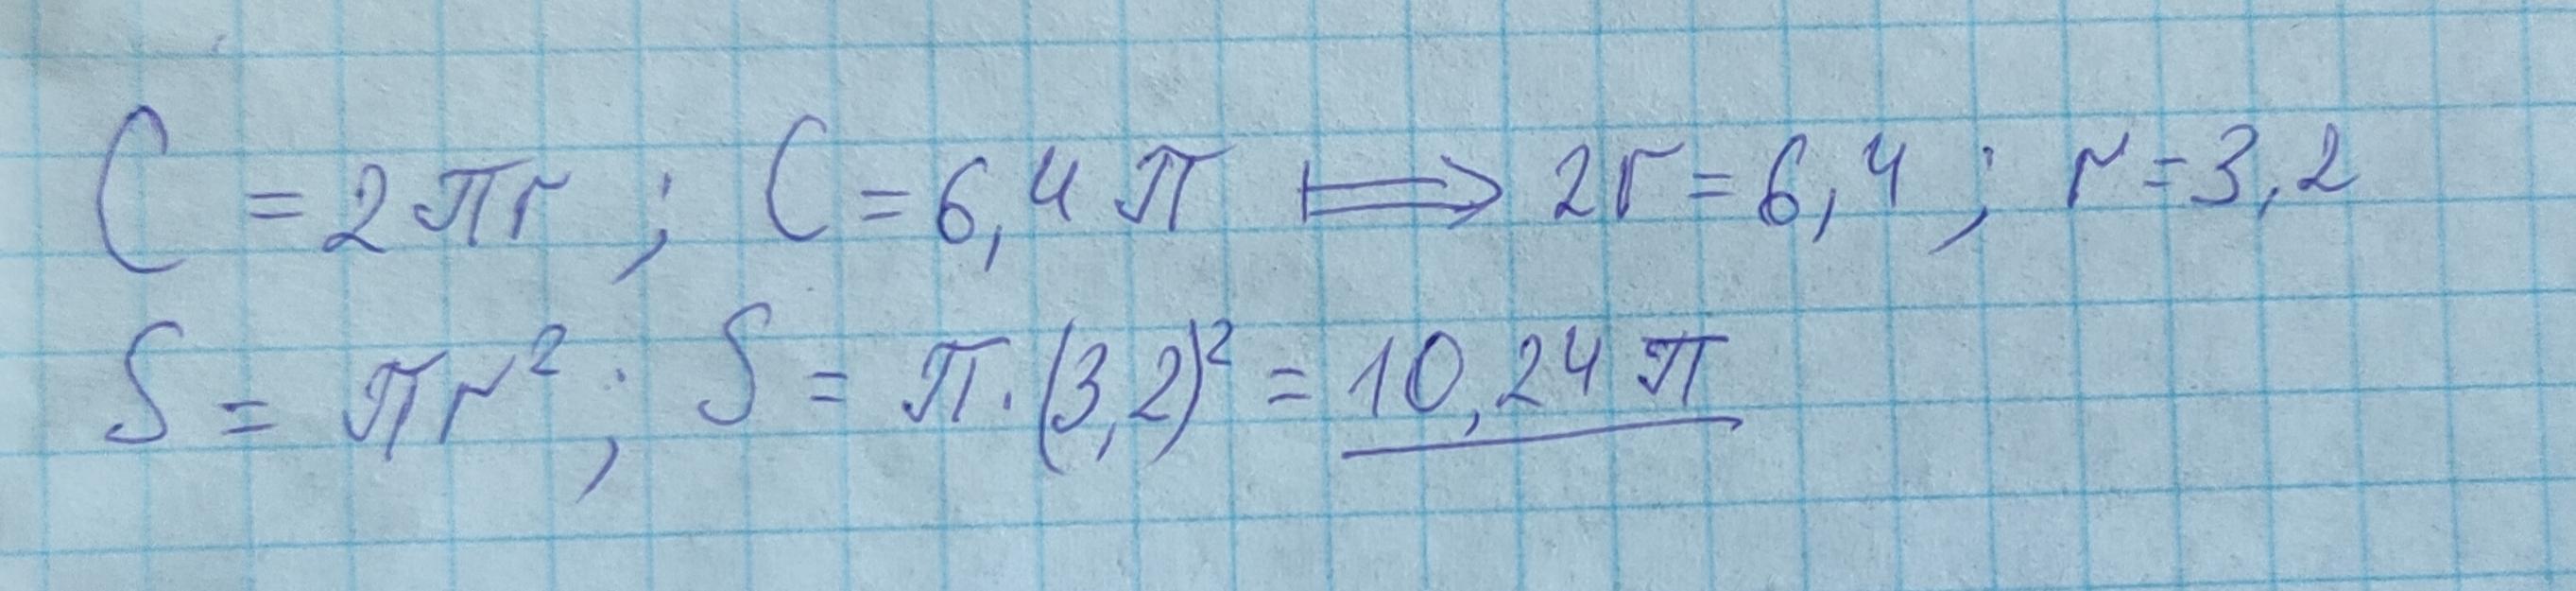 C = 2πr ; C = 6,4 π ⟹ 2r = 6,4 ; r = 3,2
S = πr² ; S = π · (3,2)² = 10,24 π